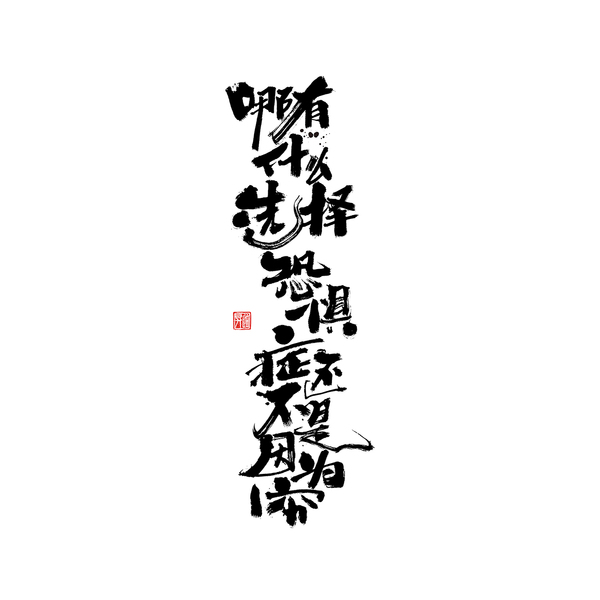 哪有
什么
选择
恐
惧
症还
不是
因为
穷